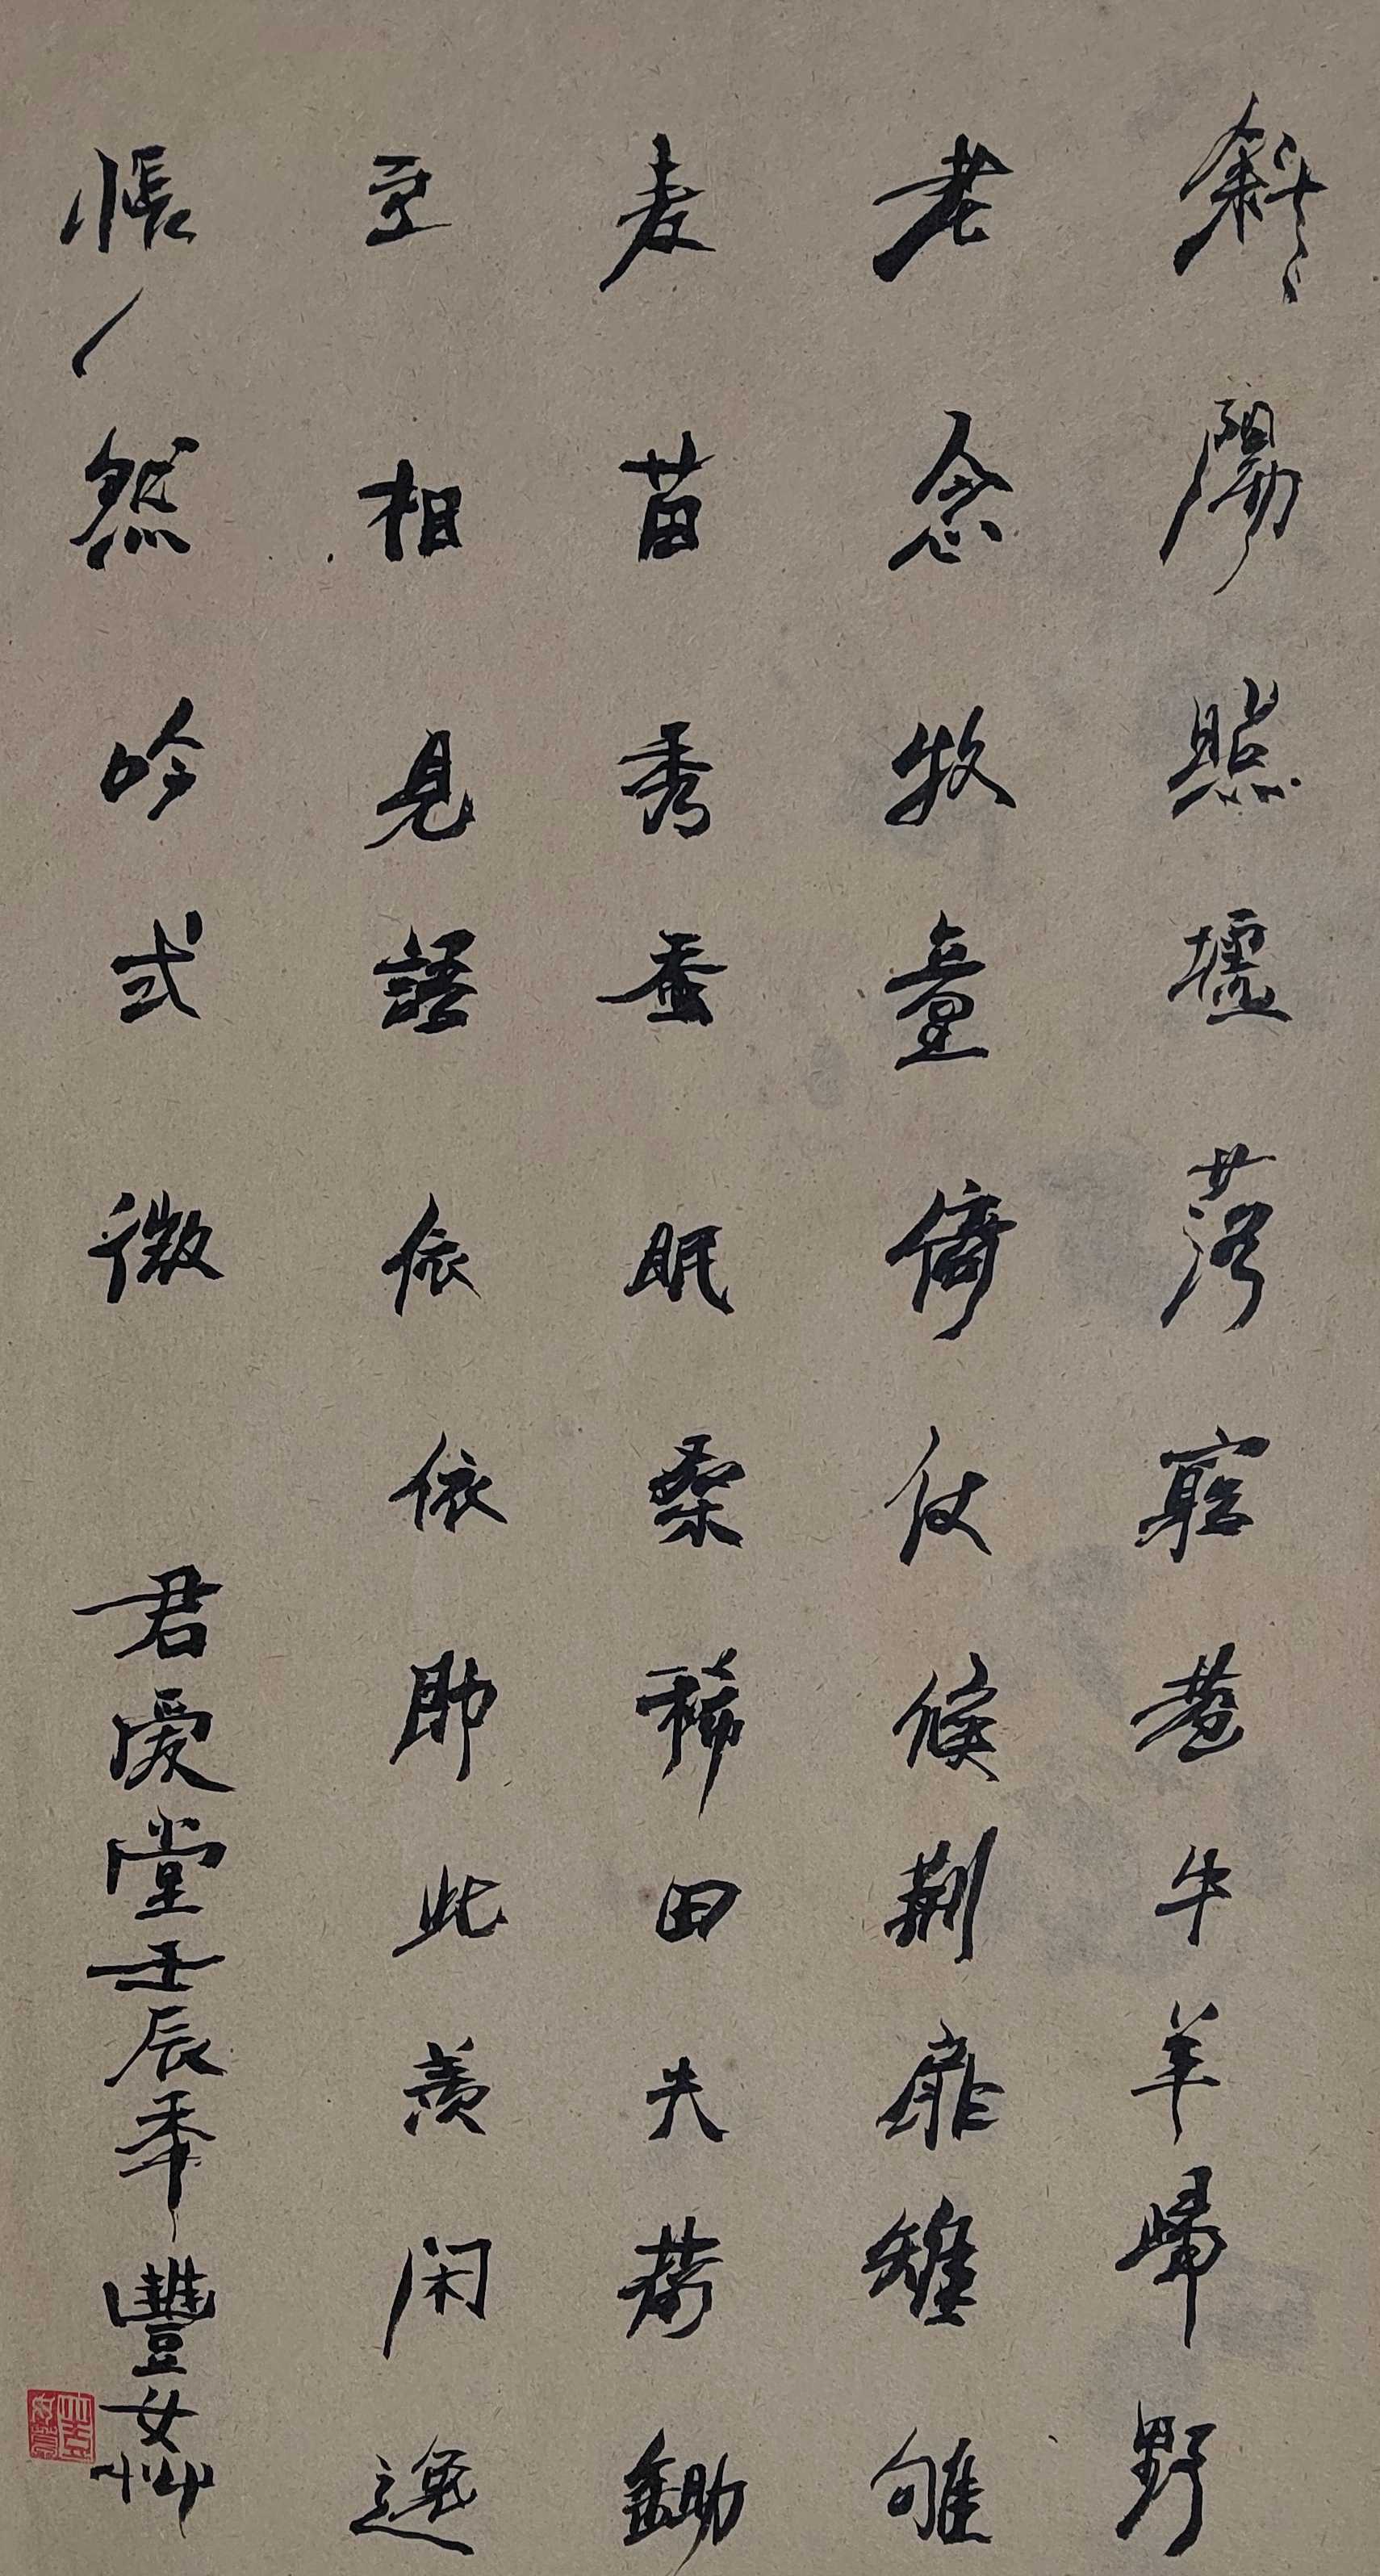 斜陽照墟落窮巷牛羊歸野
老念牧童倚仗候荆扉雉雊
麦苗秀蚕眠桑稀田夫荷鋤
至相見語依依即此羨閑逸
悵然吟式微
君爱堂壬辰年豐女艸